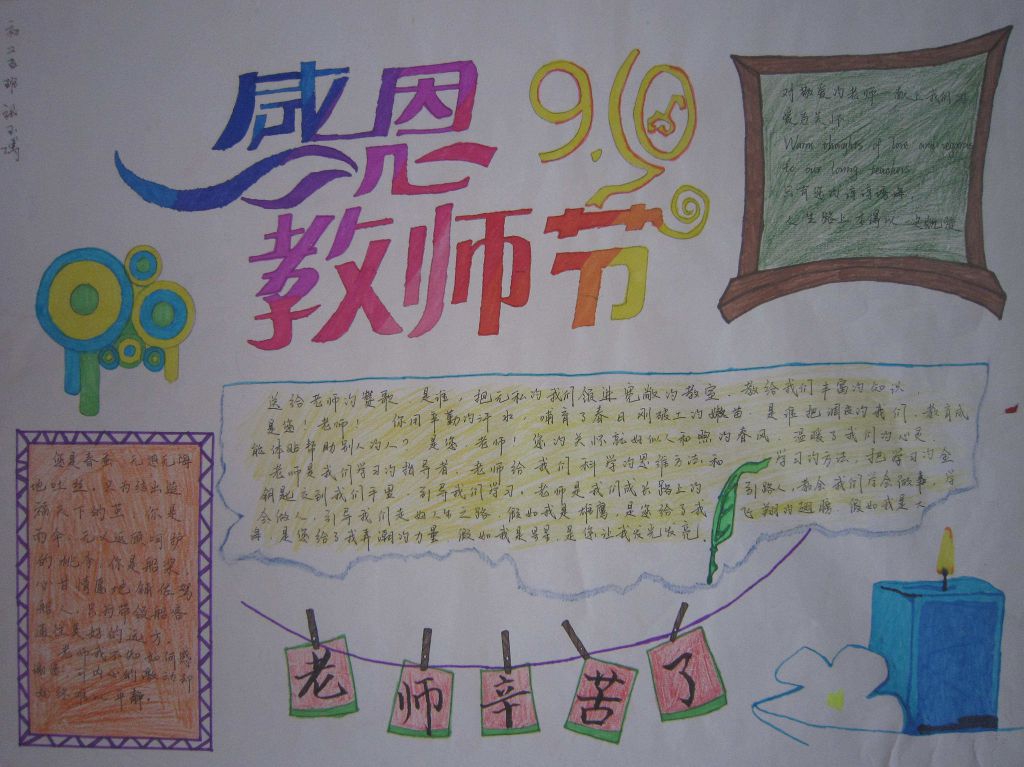 感恩
9.10
教师节
对敬爱的老师一献上我们的
爱与关怀
Warm thoughts of love and regards
to our loving teachers
只有您的谆谆诲,
人生路上才得以
送给老师的赞歌 是谁,把无私的我们领进宽敞的教室,教给我们丰富的知识
是您!老师! 你用辛勤的汗水,哺育了春日刚破土的嫩苗.是谁把调皮的我们.教育成
能体贴帮助别人的人?是您,老师!您的关怀就好似人和煦的春风.温暖了我们的心灵.
老师是我们学习的指导者,老师给我们科学的思维方法和 学习的方法,把学习的金
钥匙交到我们手里,引导我们学习,老师是我们成长路上的 引路人,教会我们学会做事,学
会做人,引导我们走好人生之路.假如我是雄鹰,是您给了我 飞翔的翅膀 假如我是大
海,是您给了我弄潮的力量.假如我是星星.是您让我发光发亮.
您是春蚕,无怨无悔
地吐丝,只为结出造
福天下的茧 你是
雨伞,无以
的桃李,你是船桨
心甘情愿地
船人,只为带领船客
通往美好的远方.
老师我不知如何感
谢您,可内心的激动却
平静.
老师辛苦了